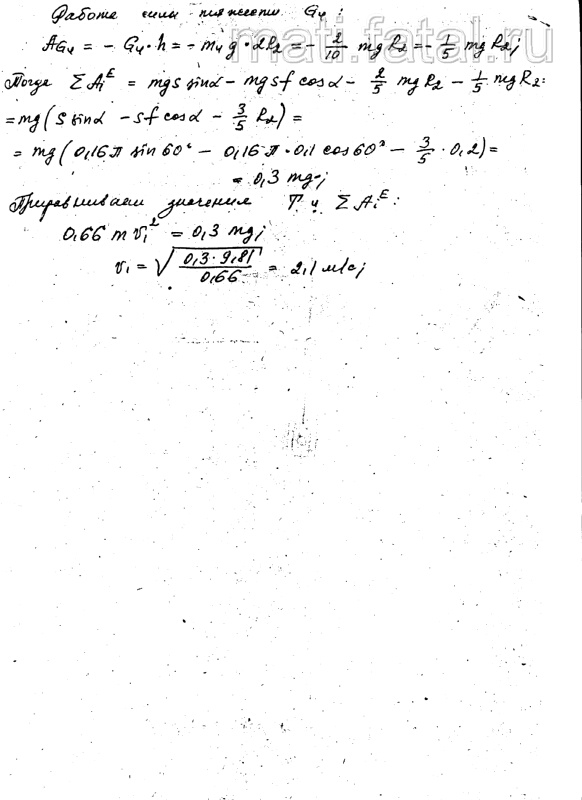 Работа силы тяжести G₄ :
mati.fatal.ru
A_G₄ = − G₄·h = − m₄g·2R₂ = − 2/10 mgR₂ = − 1/5 mgR₂;
Тогда ΣAᵢᴱ = mgs sinα − mgsf cosα − 2/5 mgR₂ − 1/5 mgR₂ =
= mg(s sinα − sf cosα − 3/5 R₂) =
= mg(0,16π sin60° − 0,16π·0,1 cos60° − 3/5 · 0,2) =
= 0,3 mg;
Приравниваем значения T и ΣAᵢᴱ :
0,66 m v₁² = 0,3 mg;
v₁ = √(0,3·9,81 / 0,66) = 2,1 м/с;